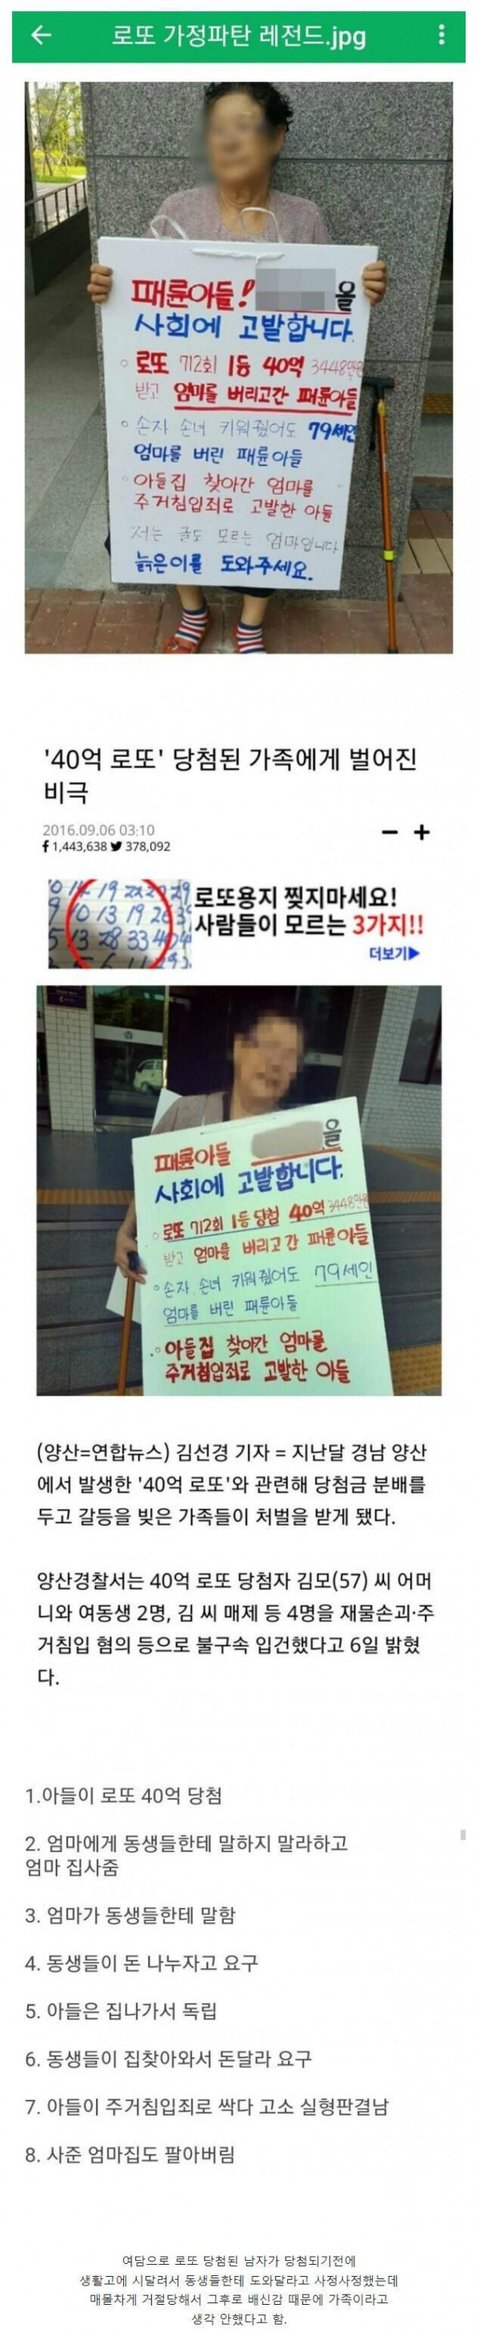 로또 가정파탄 레전드.jpg
패륜아들! 을
사회에 고발합니다.
○ 로또 712회 1등 40억 3448만원
받고 엄마를 버리고간 패륜아들
○ 손자 손녀 키워줬어도 79세인
엄마를 버린 패륜아들
○ 아들집 찾아간 엄마를
주거침입죄로 고발한 아들
저는 글도 모르는 엄마입니다
늙은이를 도와주세요.
'40억 로또' 당첨된 가족에게 벌어진
비극
2016.09.06 03:10
1,443,638 378,092
로또용지 찢지마세요!
사람들이 모르는 3가지!!
더보기▶
패륜아들 을
사회에 고발합니다.
○ 로또 712회 1등 당첨 40억 3448만원
받고 엄마를 버리고간 패륜아들
○ 손자, 손녀 키워줬어도 79세인
엄마를 버린 패륜아들
○ 아들집 찾아간 엄마를
주거침입죄로 고발한 아들
(양산=연합뉴스) 김선경 기자 = 지난달 경남 양산
에서 발생한 '40억 로또'와 관련해 당첨금 분배를
두고 갈등을 빚은 가족들이 처벌을 받게 됐다.
양산경찰서는 40억 로또 당첨자 김모(57) 씨 어머
니와 여동생 2명, 김 씨 매제 등 4명을 재물손괴·주
거침입 혐의 등으로 불구속 입건했다고 6일 밝혔
다.
1.아들이 로또 40억 당첨
2. 엄마에게 동생들한테 말하지 말라하고
엄마 집사줌
3. 엄마가 동생들한테 말함
4. 동생들이 돈 나누자고 요구
5. 아들은 집나가서 독립
6. 동생들이 집찾아와서 돈달라 요구
7. 아들이 주거침입죄로 싹다 고소 실형판결남
8. 사준 엄마집도 팔아버림
여담으로 로또 당첨된 남자가 당첨되기전에
생활고에 시달려서 동생들한테 도와달라고 사정사정했는데
매몰차게 거절당해서 그후로 배신감 때문에 가족이라고
생각 안했다고 함.